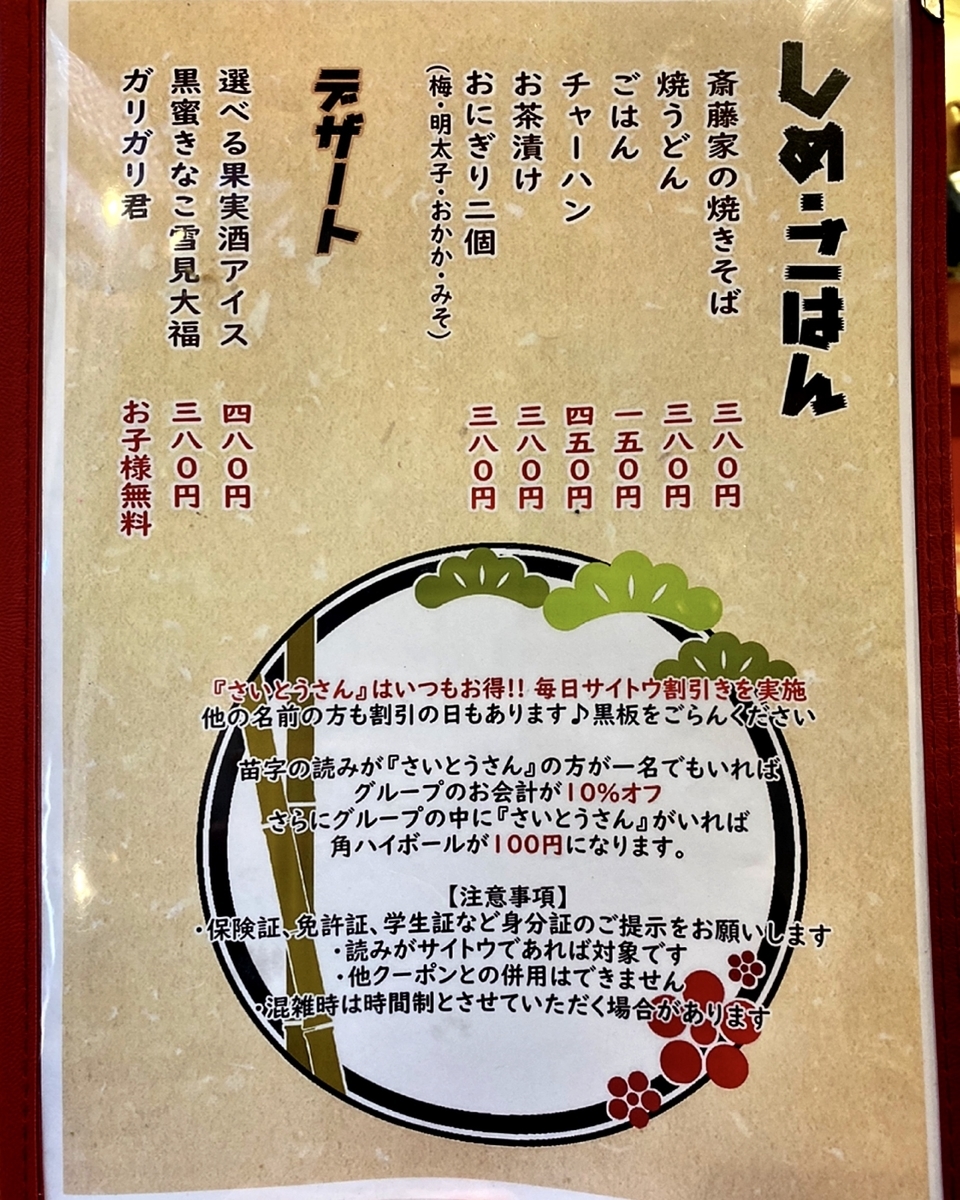 しめ・ごはん
斎藤家の焼きそば 三八〇円
焼うどん 三八〇円
ごはん 一五〇円
チャーハン 四五〇円
お茶漬け 三八〇円
おにぎり二個 三八〇円
(梅・明太子・おかか・みそ)
デザート
選べる果実酒アイス 四八〇円
黒蜜きなこ雪見大福 三八〇円
ガリガリ君 お子様無料
『さいとうさん』はいつもお得!! 毎日サイトウ割引きを実施
他の名前の方も割引の日もあります♪黒板をごらんください
苗字の読みが『さいとうさん』の方が一名でもいれば
グループのお会計が10%オフ
さらにグループの中に『さいとうさん』がいれば
角ハイボールが100円になります。
【注意事項】
・保険証、免許証、学生証など身分証のご提示をお願いします
・読みがサイトウであれば対象です
・他クーポンとの併用はできません
・混雑時は時間制とさせていただく場合があります